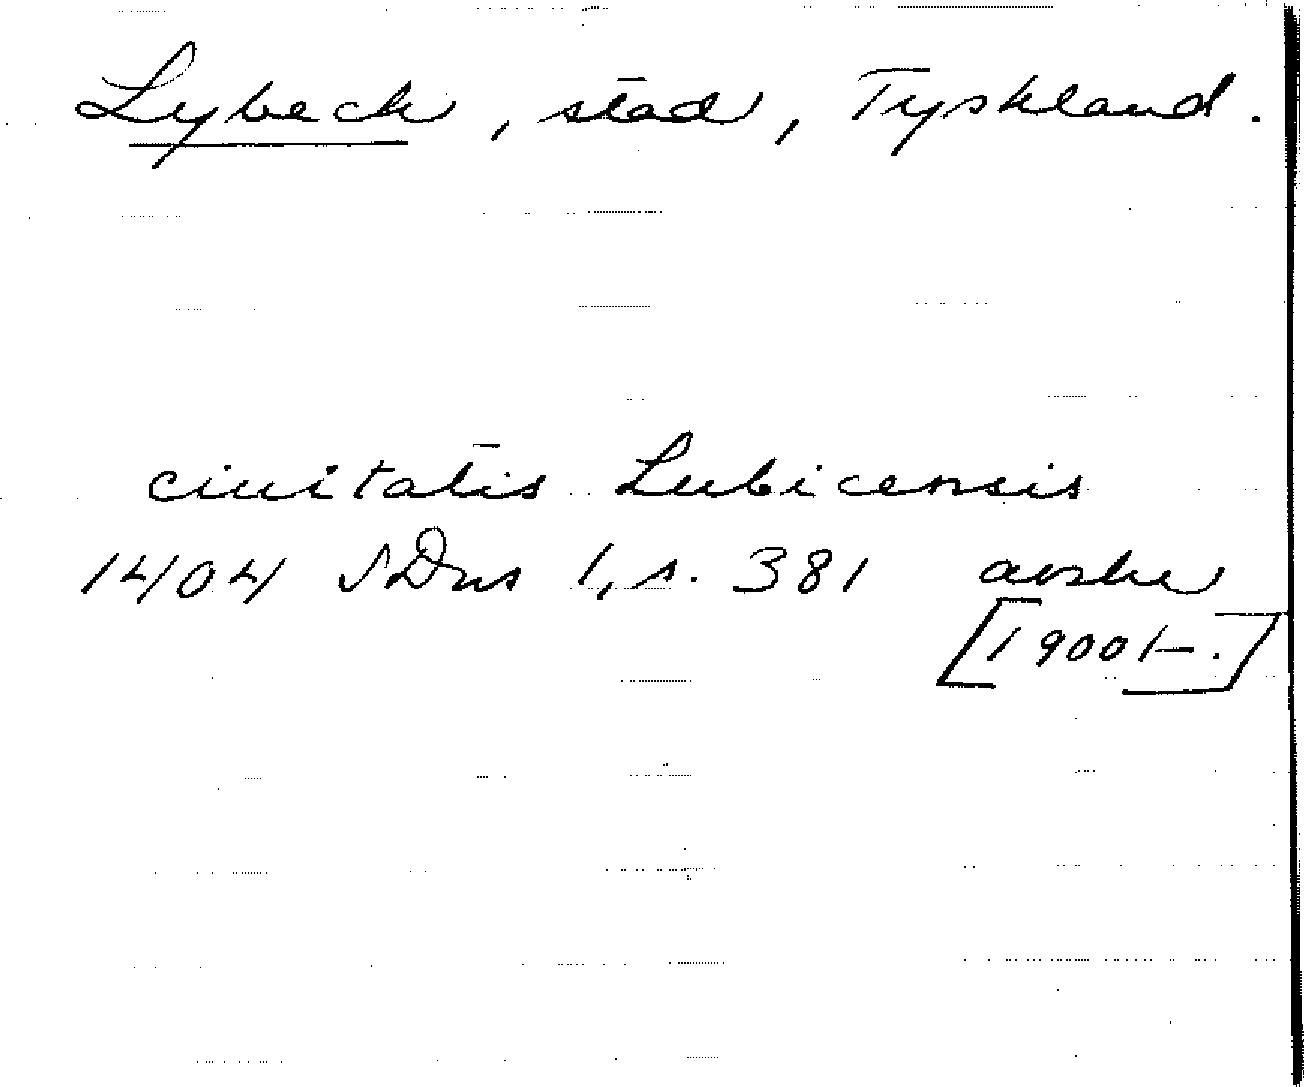 Lybeck, stad, Tyskland.
ciuitatis Lubicensis
1404 SDns 1, s. 381 avskr
[19001-.]